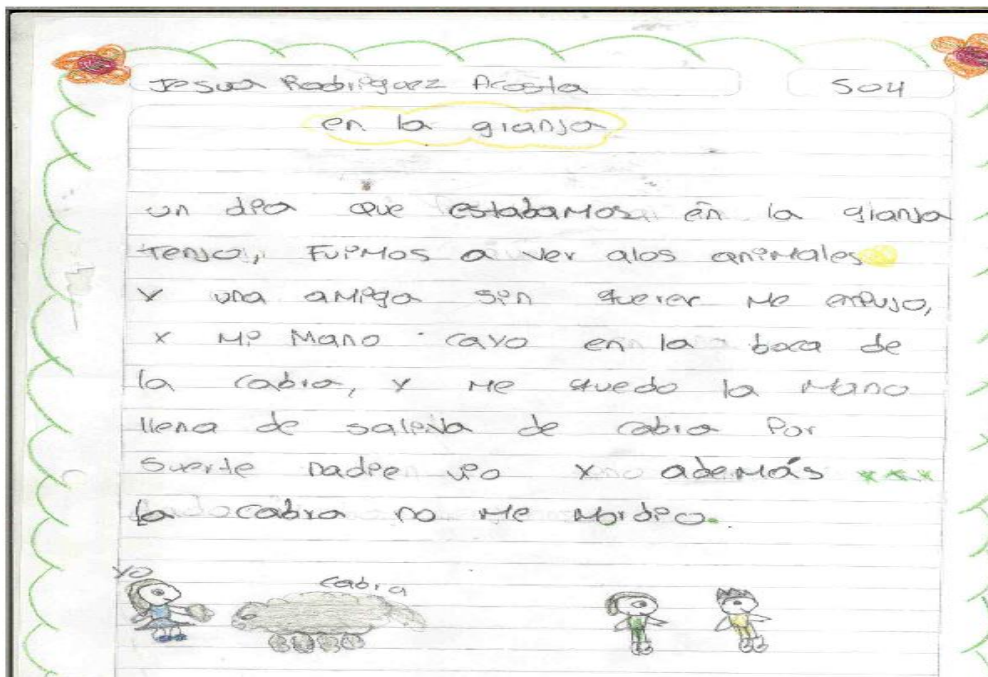 Jesua Rodriguez Acosta
504
en la granja
un dia que estabamos en la granja
Tenjo, Fuimos a ver alos animales
y una amiga sin querer me enpujo,
y mi mano cayo en la boca de
la cabra, y me quedo la mano
llena de saliva de cabra Por
suerte nadie vio y además
la cabra no me mordio.
yo
cabra